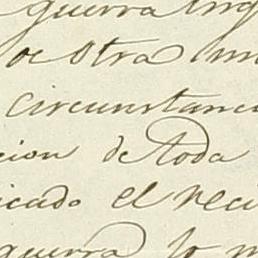 guerra
de otra
circunstanc
cion de toda
icado el reci
guerra lo m